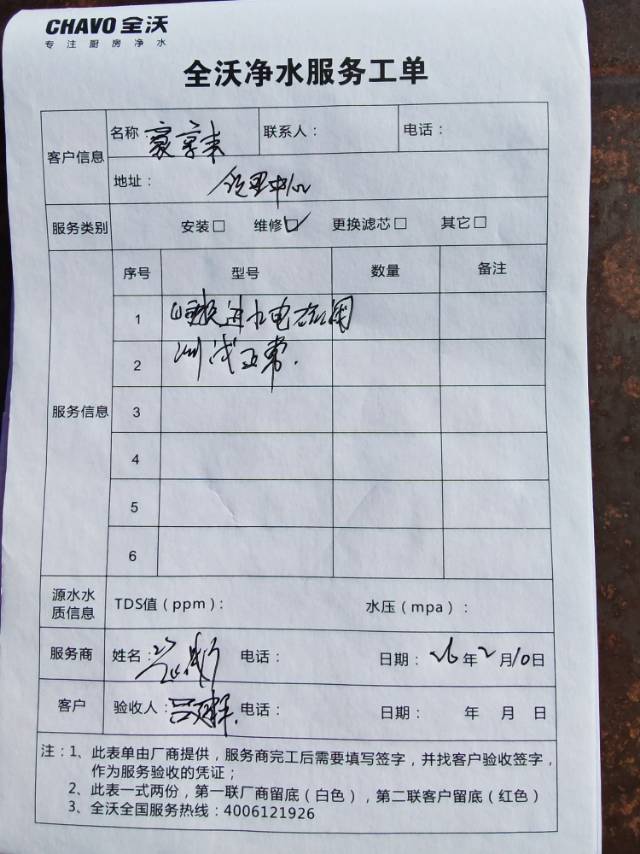 CHAVO 全沃
专注厨房净水
全沃净水服务工单
客户信息 名称 豪享来 联系人： 电话：
地址： 管理中心
服务类别 安装□ 维修☑ 更换滤芯□ 其它□
服务信息 序号 型号 数量 备注
1 更换进水电磁阀
2 测试正常.
3
4
5
6
源水水质信息 TDS值（ppm）： 水压（mpa）：
服务商 姓名： 电话： 日期：26年2月10日
客户 验收人： 电话： 日期： 年 月 日
注：1、此表单由厂商提供，服务商完工后需要填写签字，并找客户验收签字，
作为服务验收的凭证；
2、此表一式两份，第一联厂商留底（白色），第二联客户留底（红色）
3、全沃全国服务热线：4006121926